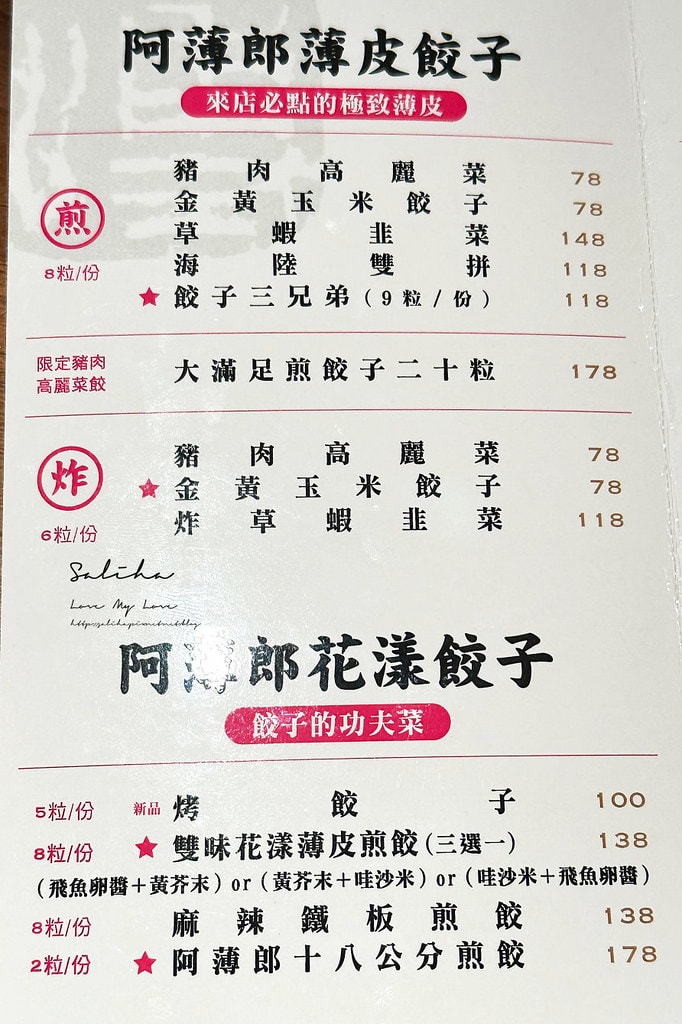 阿薄郎薄皮餃子
來店必點的極致薄皮
煎
8粒/份
豬肉高麗菜 78
金黃玉米餃子 78
草蝦韭菜 148
海陸雙拼 118
★餃子三兄弟(9粒/份) 118
限定豬肉
高麗菜餃
大滿足煎餃子二十粒 178
炸
6粒/份
豬肉高麗菜 78
★金黃玉米餃子 78
炸草蝦韭菜 118
Saliha
Love My Love
阿薄郎花漾餃子
餃子的功夫菜
5粒/份 新品 烤餃子 100
8粒/份 ★雙味花漾薄皮煎餃(三選一) 138
(飛魚卵醬+黃芥末)or(黃芥末+哇沙米)or(哇沙米+飛魚卵醬)
8粒/份 麻辣鐵板煎餃 138
2粒/份 ★阿薄郎十八公分煎餃 178